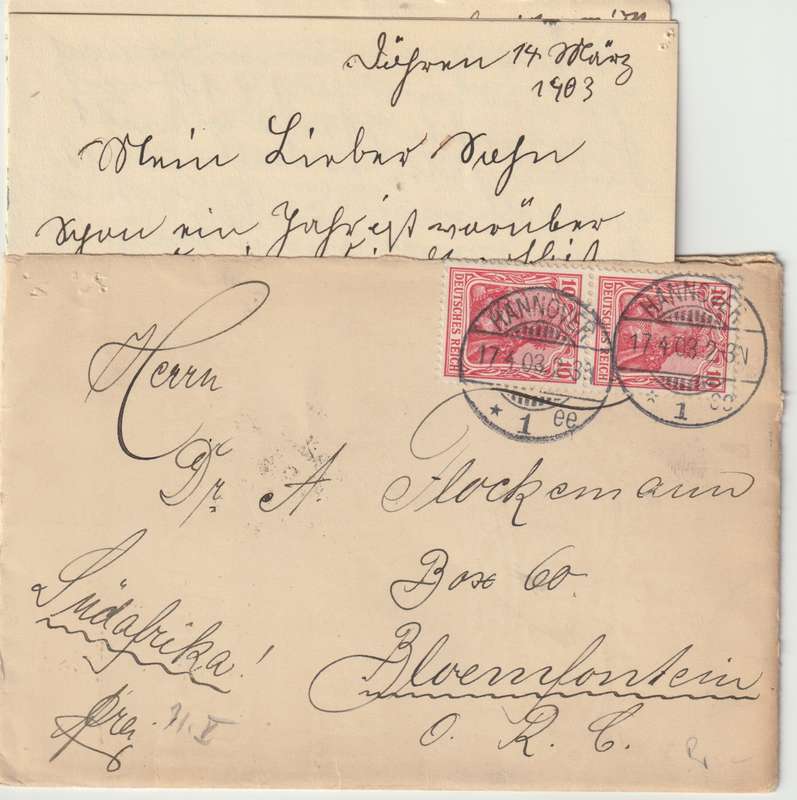 Döhren 14 März
1903
Mein Lieber Sohn
Schon ein Jahr ist vorüber
10 DEUTSCHES REICH 10
10 DEUTSCHES REICH 10
HANNOVER
17.4.03.2-3N
* 1 ee
HANNOVER
17.4.03.2-3N
* 1 ee
Herrn
Dr. A. Flockemann
Box 60.
Südafrika!
Bloemfontein
O. R. C.
frei. 11.V